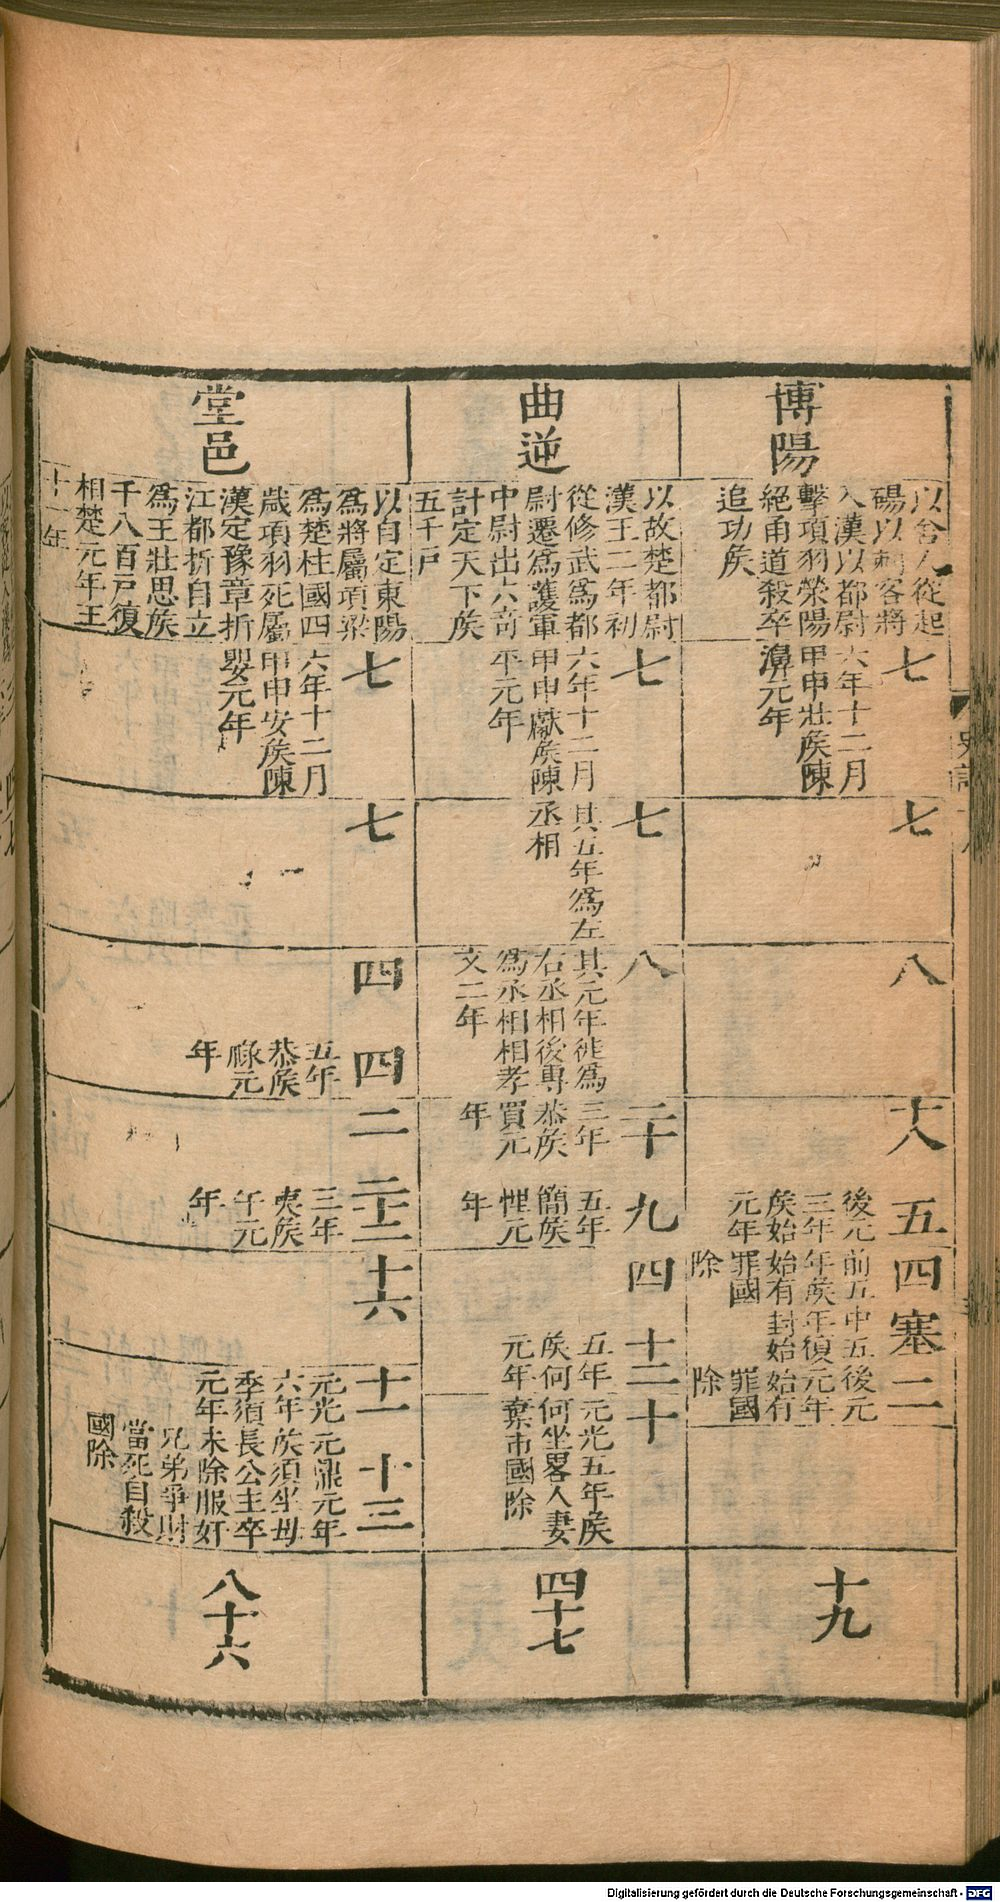 博陽
以舍人從起
碭以刺客將
入漢以都尉
擊項羽滎陽
絕甬道殺卒
追功矦
七
六年十二月
甲申壯矦陳
濞元年
七
八
十八
五
後元
三年
矦始
元年
四
前五
年矦
始有
罪國
除
塞
中五
年復
封始
二
後元
元年
始有
罪國
除
十九
曲逆
以故楚都尉
漢王二年初
從修武爲都
尉遷爲護軍
中尉出六奇
計定天下矦
五千戸
七
六年十二月
甲申獻矦陳
平元年
七
其五年爲左
丞相
八
其元年徙爲
右丞相後專
爲丞相相孝
文二年
二十
三年
恭矦
買元
年
九
五年
簡矦
悝元
年
四
十二
五年
矦何
元年
十
元光五年矦
何坐畧人妻
棄市國除
四十七
堂邑
以自定東陽
爲將屬項梁
爲楚柱國四
歲項羽死屬
漢定豫章折
江都折自立
爲王壯思矦
千八百戸復
相楚元年王
十一年
七
六年十二月
甲申安矦陳
嬰元年
七
四
四
五年
恭矦
祿元
年
二
二十一
三年
夷矦
午元
年
十六
十一
元光
六年
季須
元年
十三
元鼎元年
矦須坐母
長公主卒
未除服奸
兄弟爭財
當死自殺
國除
八十六
史記
Digitalisierung gefördert durch die Deutsche Forschungsgemeinschaft - DFG